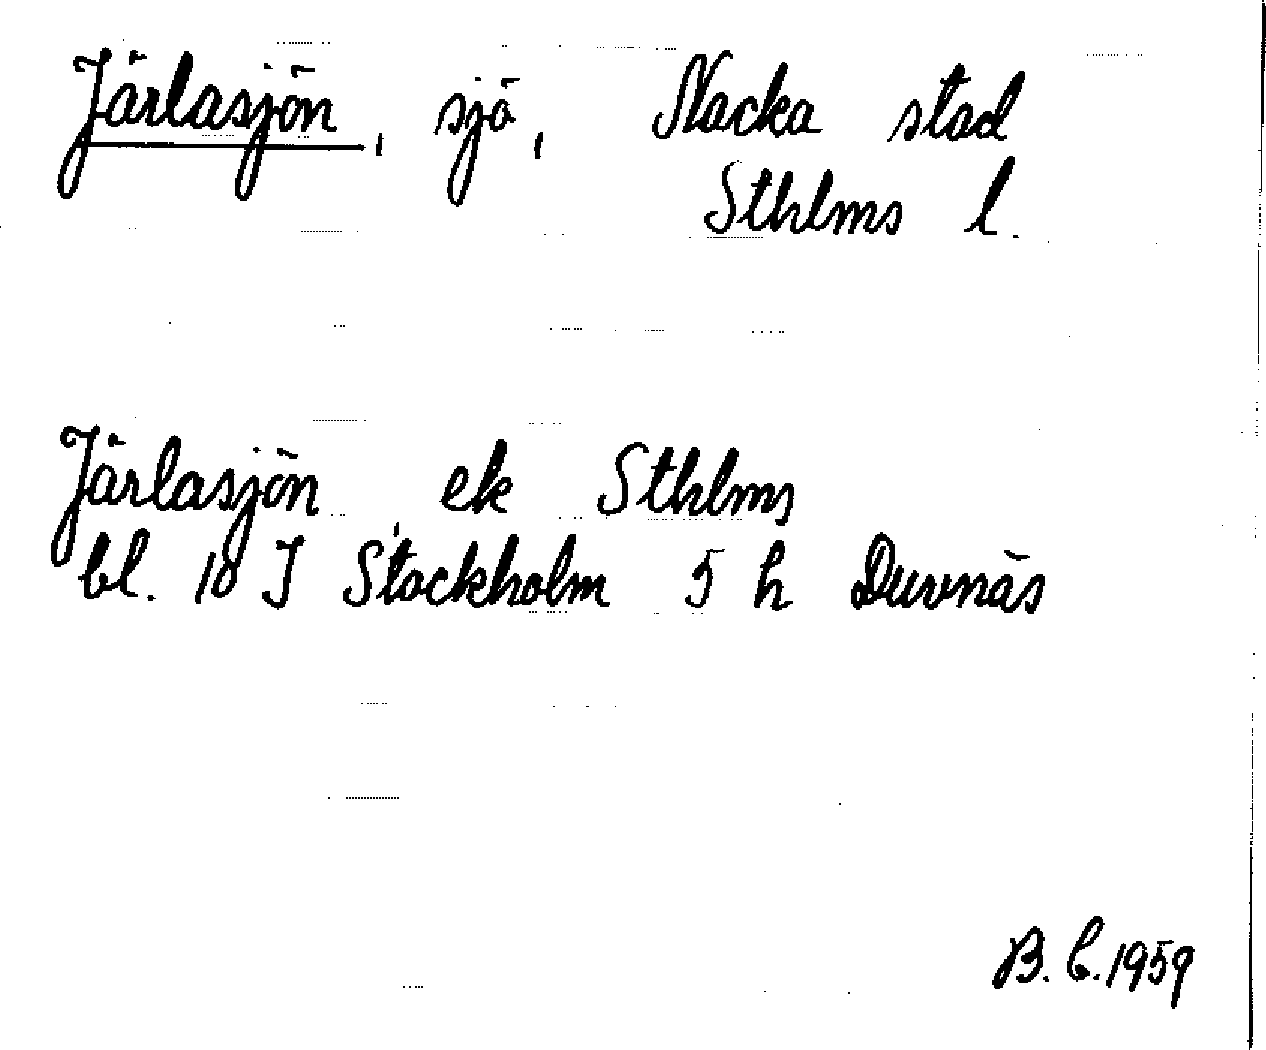 Järlasjön, sjö, Nacka stad
Sthlms l.
Järlasjön ek Sthlms
bl. 10 I Stockholm 5 h Duvnäs
B. C. 1959